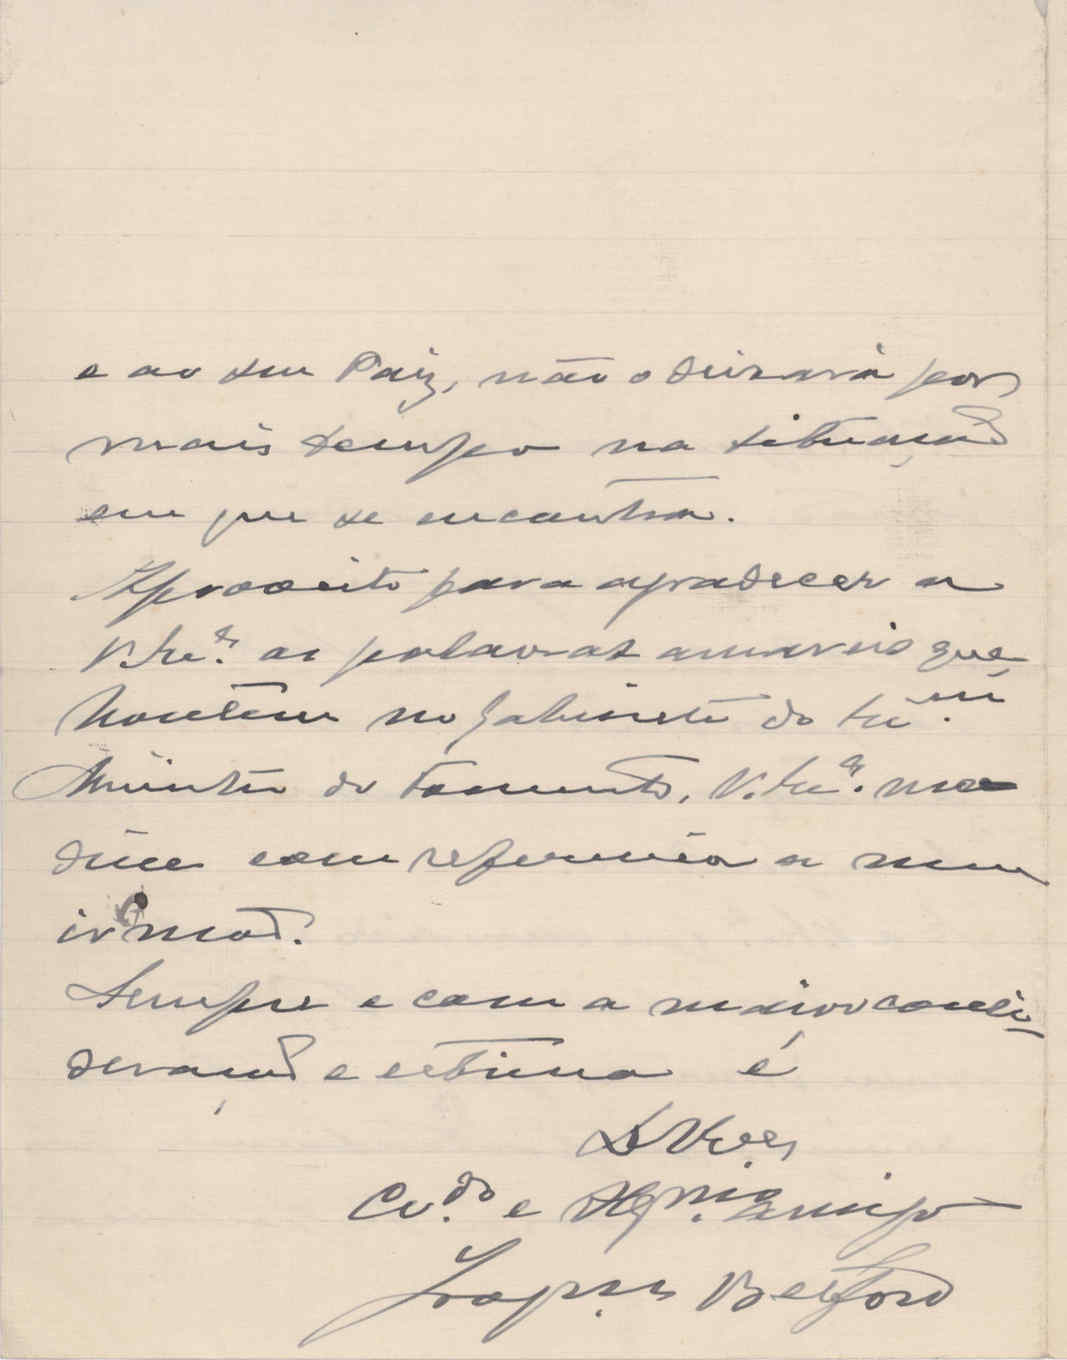 e ao seu Paiz, não o deixará por
mais tempo na situação
em que se encontra.
Aproveito para agradecer a
V. Exª. as palavras amaveis que
hontem no gabinete do Exmº.
Ministro do Fomento, V. Exª. me
disse com referencia a meu
irmaõ.
Sempre e com a maior consi-
deração e estima é
De V. Exª
Crº.do e Obg.mo amigo
Belford